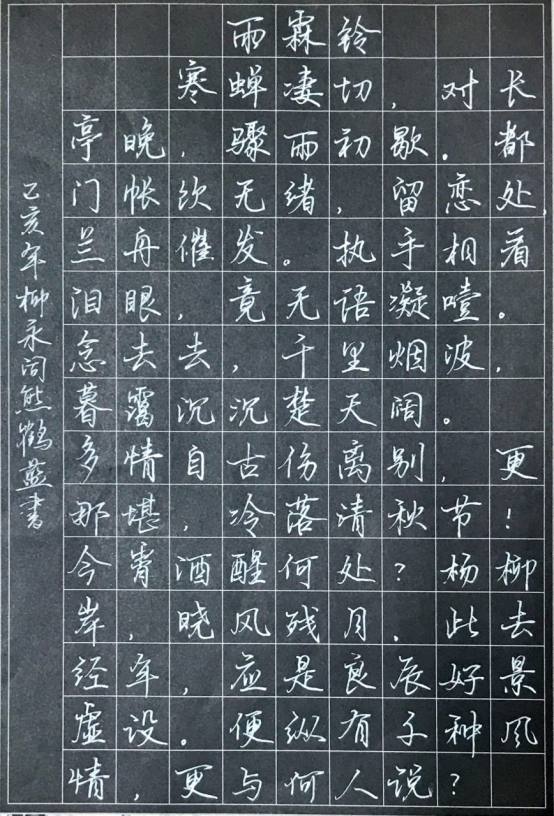 雨霖铃
寒蝉凄切，对长
亭晚，骤雨初歇。都
门帐饮无绪，留恋处，
兰舟催发。执手相看
泪眼，竟无语凝噎。
念去去，千里烟波，
暮霭沉沉楚天阔。
多情自古伤离别，更
那堪，冷落清秋节！
今宵酒醒何处？杨柳
岸，晓风残月。此去
经年，应是良辰好景
虚设。便纵有千种风
情，更与何人说？
己亥年柳永词熊鹤蓝书